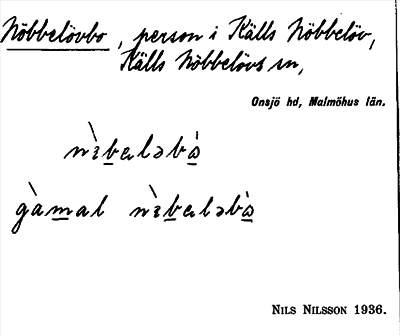 Nöbbelövbo, person i Källs Nöbbelöv,
Källs Nöbbelövs sn,
Onsjö hd, Malmöhus län.
nɜ̀bɐləbs̀
gàmal nɜ̀bɐləbs̀
NILS NILSSON 1936.